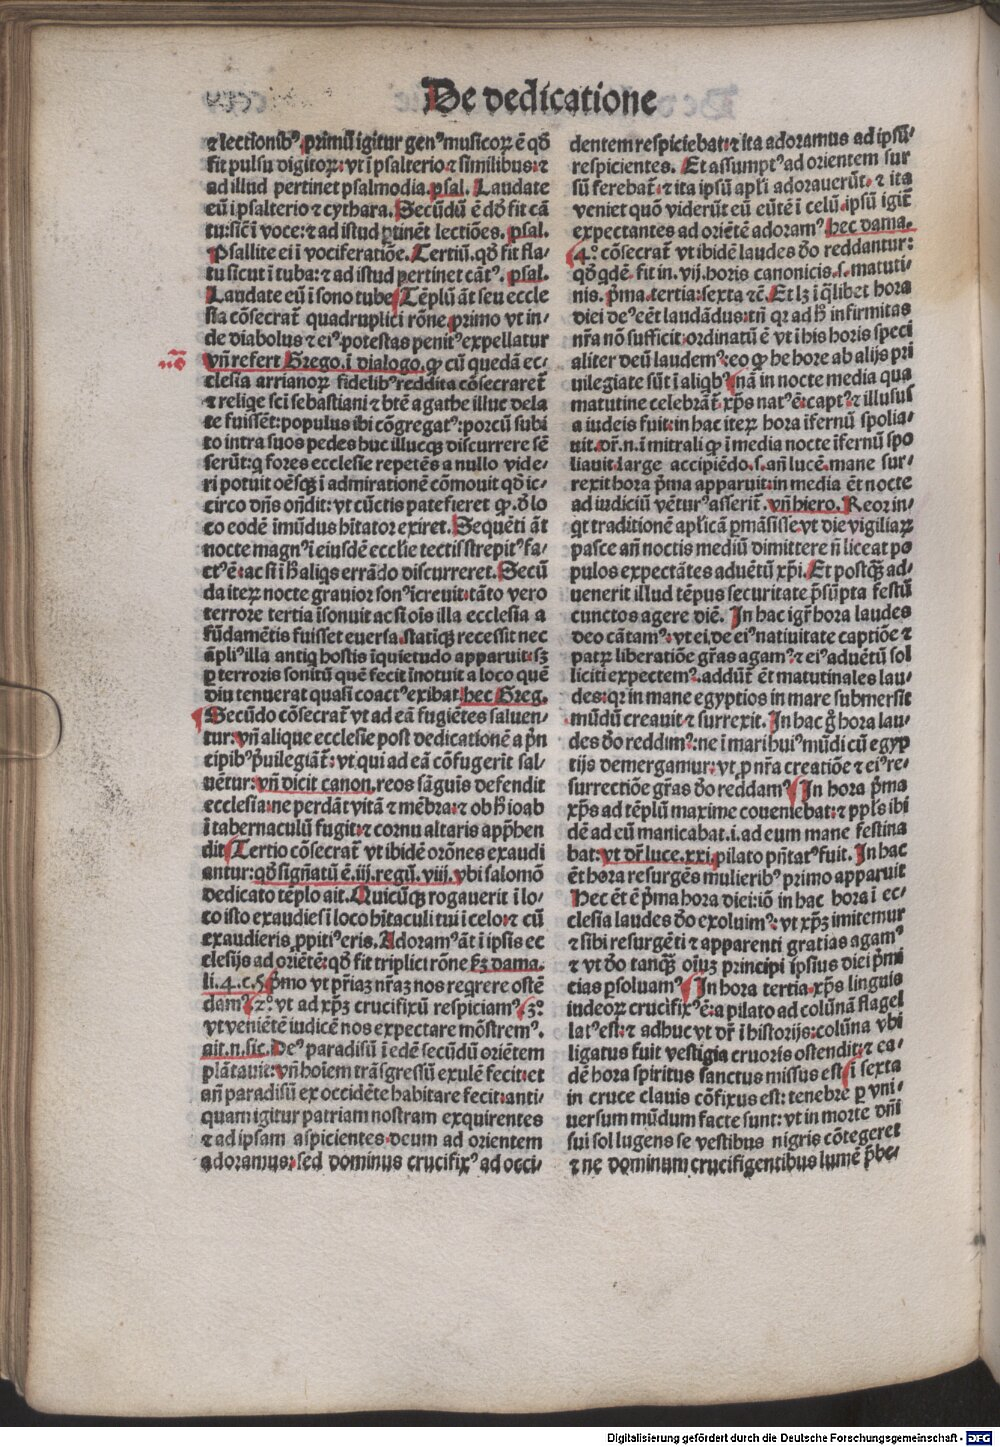 De dedicatione
⁊ lectionib⁹. primū igitur gen⁹ musicoꝝ ē qd̄
fit pulsu digitoꝝ: vt ī psalterio ⁊ similibus: ⁊
ad illud pertinet psalmodia. psal. Laudate
eū ī psalterio ⁊ cythara. Secūdū ē qd̄ fit cā
tu: sic̄ ī voce: ⁊ ad istud ꝑtinēt lectiōes. psal.
Psallite ei ī vociferatiōe. Tertiū. qd̄ fit fla-
tu sicut ī tuba: ⁊ ad istud pertinet cāt⁹. psal.
Laudate eū ī sono tube Tēplū āt seu eccle
sia cōsecrat̄ quadruplici rōne. primo vt in-
de diabolus ⁊ ei⁹ potestas penit⁹ expellatur
vn̄ refert Grego. ī dialogo. ꝙ cū quedā ec-
clesia arrianoꝝ fidelib⁹ reddita cōsecraret̄
⁊ reliqe sc̄i sebastiani ⁊ btē agathe illuc dela
te fuissēt: populus ibi cōgregat⁹: porcū subi
to intra suos pedes huc illucqꝫ discurrere sē
serūt: q fores ecclesie repetēs a nullo vide-
ri potuit oēsqꝫ ī admirationē cōmouit qd̄ ic-
circo dn̄s on̄dit: vt cūctis patefieret ꝙ. d̄ lo
co eodē īmūdus hītator exiret. Sequēti āt
nocte magn⁹ ī eiusdē ecclīe tectis strepit⁹ fa-
ct⁹ ē: ac si ī h̄ aliqs errādo discurreret. Secū
da iteꝝ nocte grauior son⁹ īcreuit: tāto vero
terrore tertia īsonuit ac si oīs illa ecclesia a
fūdamētis fuisset euersa. statīqꝫ recessit nec
āpli⁹ illa antiq hostis īquietudo apparuit: sꝫ
ꝑ terroris sonitū quē fecit īnotuit a loco quē
diu tenuerat quasi coact⁹ exibat hec Greg.
Secūdo cōsecrat̄ vt ad eā fugiētes saluen-
tur: vn̄ alique ecclesie post dedicationē a p̄n
cipib⁹ p̄uilegiāt̄: vt qui ad eā cōfugerit sal-
uētur: vn̄ dicit canon. reos sāguīs defendit
ecclesia: ne perdāt vitā ⁊ mēbra: ⁊ ob h̄ ioab
ī tabernaculū fugit: ⁊ cornu altaris app̄hen
dit Tertio cōsecrat̄ vt ibidē orōnes exaudi
antur: qd̄ sign̄atū ē. iij. regū. viij. vbi salomō
dedicato tēplo ait. Quicūqꝫ rogauerit ī lo-
co isto exaudies ī loco hītaculi tui ī celo: ⁊ cū
exaudieris ꝓpiti⁹ eris. Adoram⁹ āt ī ipsis ec
clesijs ad oriētē: qd̄ fit triplici rōne ẜꝫ dama.
li. 4. c. 5 p̄mo vt pr̄iaꝫ nr̄aꝫ nos reqrere ostē
dam⁹ 2º. vt ad xp̄ꝫ crucifixū respiciam⁹ 3º.
vt veniētē iudicē nos expectare mōstrem⁹.
ait. n. sic. De⁹ paradisū ī edē secūdū oriētem
plātauit: vn̄ hoīem trāsgressū exulē fecit: et
an̄ paradisū ex occidēte habitare fecit: anti-
quam igitur patriam nostram exquirentes
⁊ ad ipsam aspicientes deum ad orientem
adoramus: sed dominus crucifix⁹ ad occi-
dentem respiciebat: ⁊ ita adoramus ad ipsū
respicientes. Et assumpt⁹ ad orientem sur
sū ferebat̄: ⁊ ita ipsū apl̄i adorauerūt. ⁊ ita
veniet quō viderūt eū eūtē ī celū. ipsū igit̄
expectantes ad oriētē adoram⁹ hec dama.
4º. cōsecrat̄ vt ibidē laudes d̄o reddantur:
qd̄ qdē. fit in. vij. horis canonicis. s. matuti-
nis. p̄ma. tertia: sexta ⁊c̄. Et lꝫ ī qlibet hora
diei de⁹ eēt laudādus: tn̄ qꝛ ad h̄ infirmitas
nr̄a nō sufficit: ordinatū ē vt ī his horis speci
aliter deū laudem⁹: eo ꝙ he hore ab alijs pri
uilegiate sūt ī aliqb⁹ nā in nocte media qua
matutine celebrāt̄. xp̄s nat⁹ ē: capt⁹ ⁊ illusus
a iudeis fuit: in hac iteꝝ hora īfernū spolia-
uit. dr̄. n. ī mitrali ꝙ ī media nocte īfernū spo
liauit. large accipiēdo. s. an̄ lucē. mane sur-
rexit hora p̄ma apparuit: in media ēt nocte
ad iudiciū vētur⁹ asserit̄. vn̄ hiero. Reor in-
qt traditionē apl̄icā ꝑmāsisse: vt die vigiliaꝝ
pasce an̄ noctis mediū dimittere n̄ liceat po
pulos expectātes aduētū xp̄i. Et postqꝫ ad-
uenerit illud tēpus securitate p̄sūpta festū
cunctos agere diē. In hac igr̄ hora laudes
deo cātam⁹: vt ei. de ei⁹ natiuitate captiōe ⁊
patꝝ liberatiōe gr̄as agam⁹ ⁊ ei⁹ aduētū sol
liciti expectem⁹. addūt̄ ēt matutinales lau-
des: qꝛ in mane egyptios in mare submersit
mūdū creauit ⁊ surrexit. In hac g̊ hora lau-
des d̄o reddim⁹: ne ī mari hui⁹ mūdi cū egyp
tijs demergamur: vt ꝑ nr̄a creatiōe ⁊ ei⁹ re-
surrectiōe gr̄as d̄o reddam⁹ In hora p̄ma
xp̄s ad tēplū maxime coueniebat: ⁊ ppl̄s ibi
dē ad eū manicabat. i. ad eum mane festina
bat: vt dr̄ luce. xxi. pilato pn̄tat⁹ fuit. In hac
ēt hora resurgēs mulierib⁹ primo apparuit
Hec ēt ē p̄ma hora diei: iō in hac hora ī ec-
clesia laudes d̄o exoluim⁹: vt xp̄ꝫ imitemur
⁊ sibi resurgēti ⁊ apparenti gratias agam⁹
⁊ vt d̄o tanqꝫ oīuꝫ principi ipsius diei p̄mi
cias ꝑsoluam⁹ In hora tertia. xp̄s linguis
iudeoꝝ crucifix⁹ ē: a pilato ad colūnā flagel
lat⁹ est: ⁊ adhuc vt dr̄ ī historijs: colūna vbi
ligatus fuit vestigia cruoris ostendit: ⁊ ea-
dē hora spiritus sanctus missus est ī sexta
in cruce clauis cōfixus est: tenebre ꝑ vni-
uersum mūdum facte sunt: vt in morte dn̄i
sui sol lugens se vestibus nigris cōtegeret
⁊ ne dominum crucifigentibus lumē p̄be-
Digitalisierung gefördert durch die Deutsche Forschungsgemeinschaft - DFG